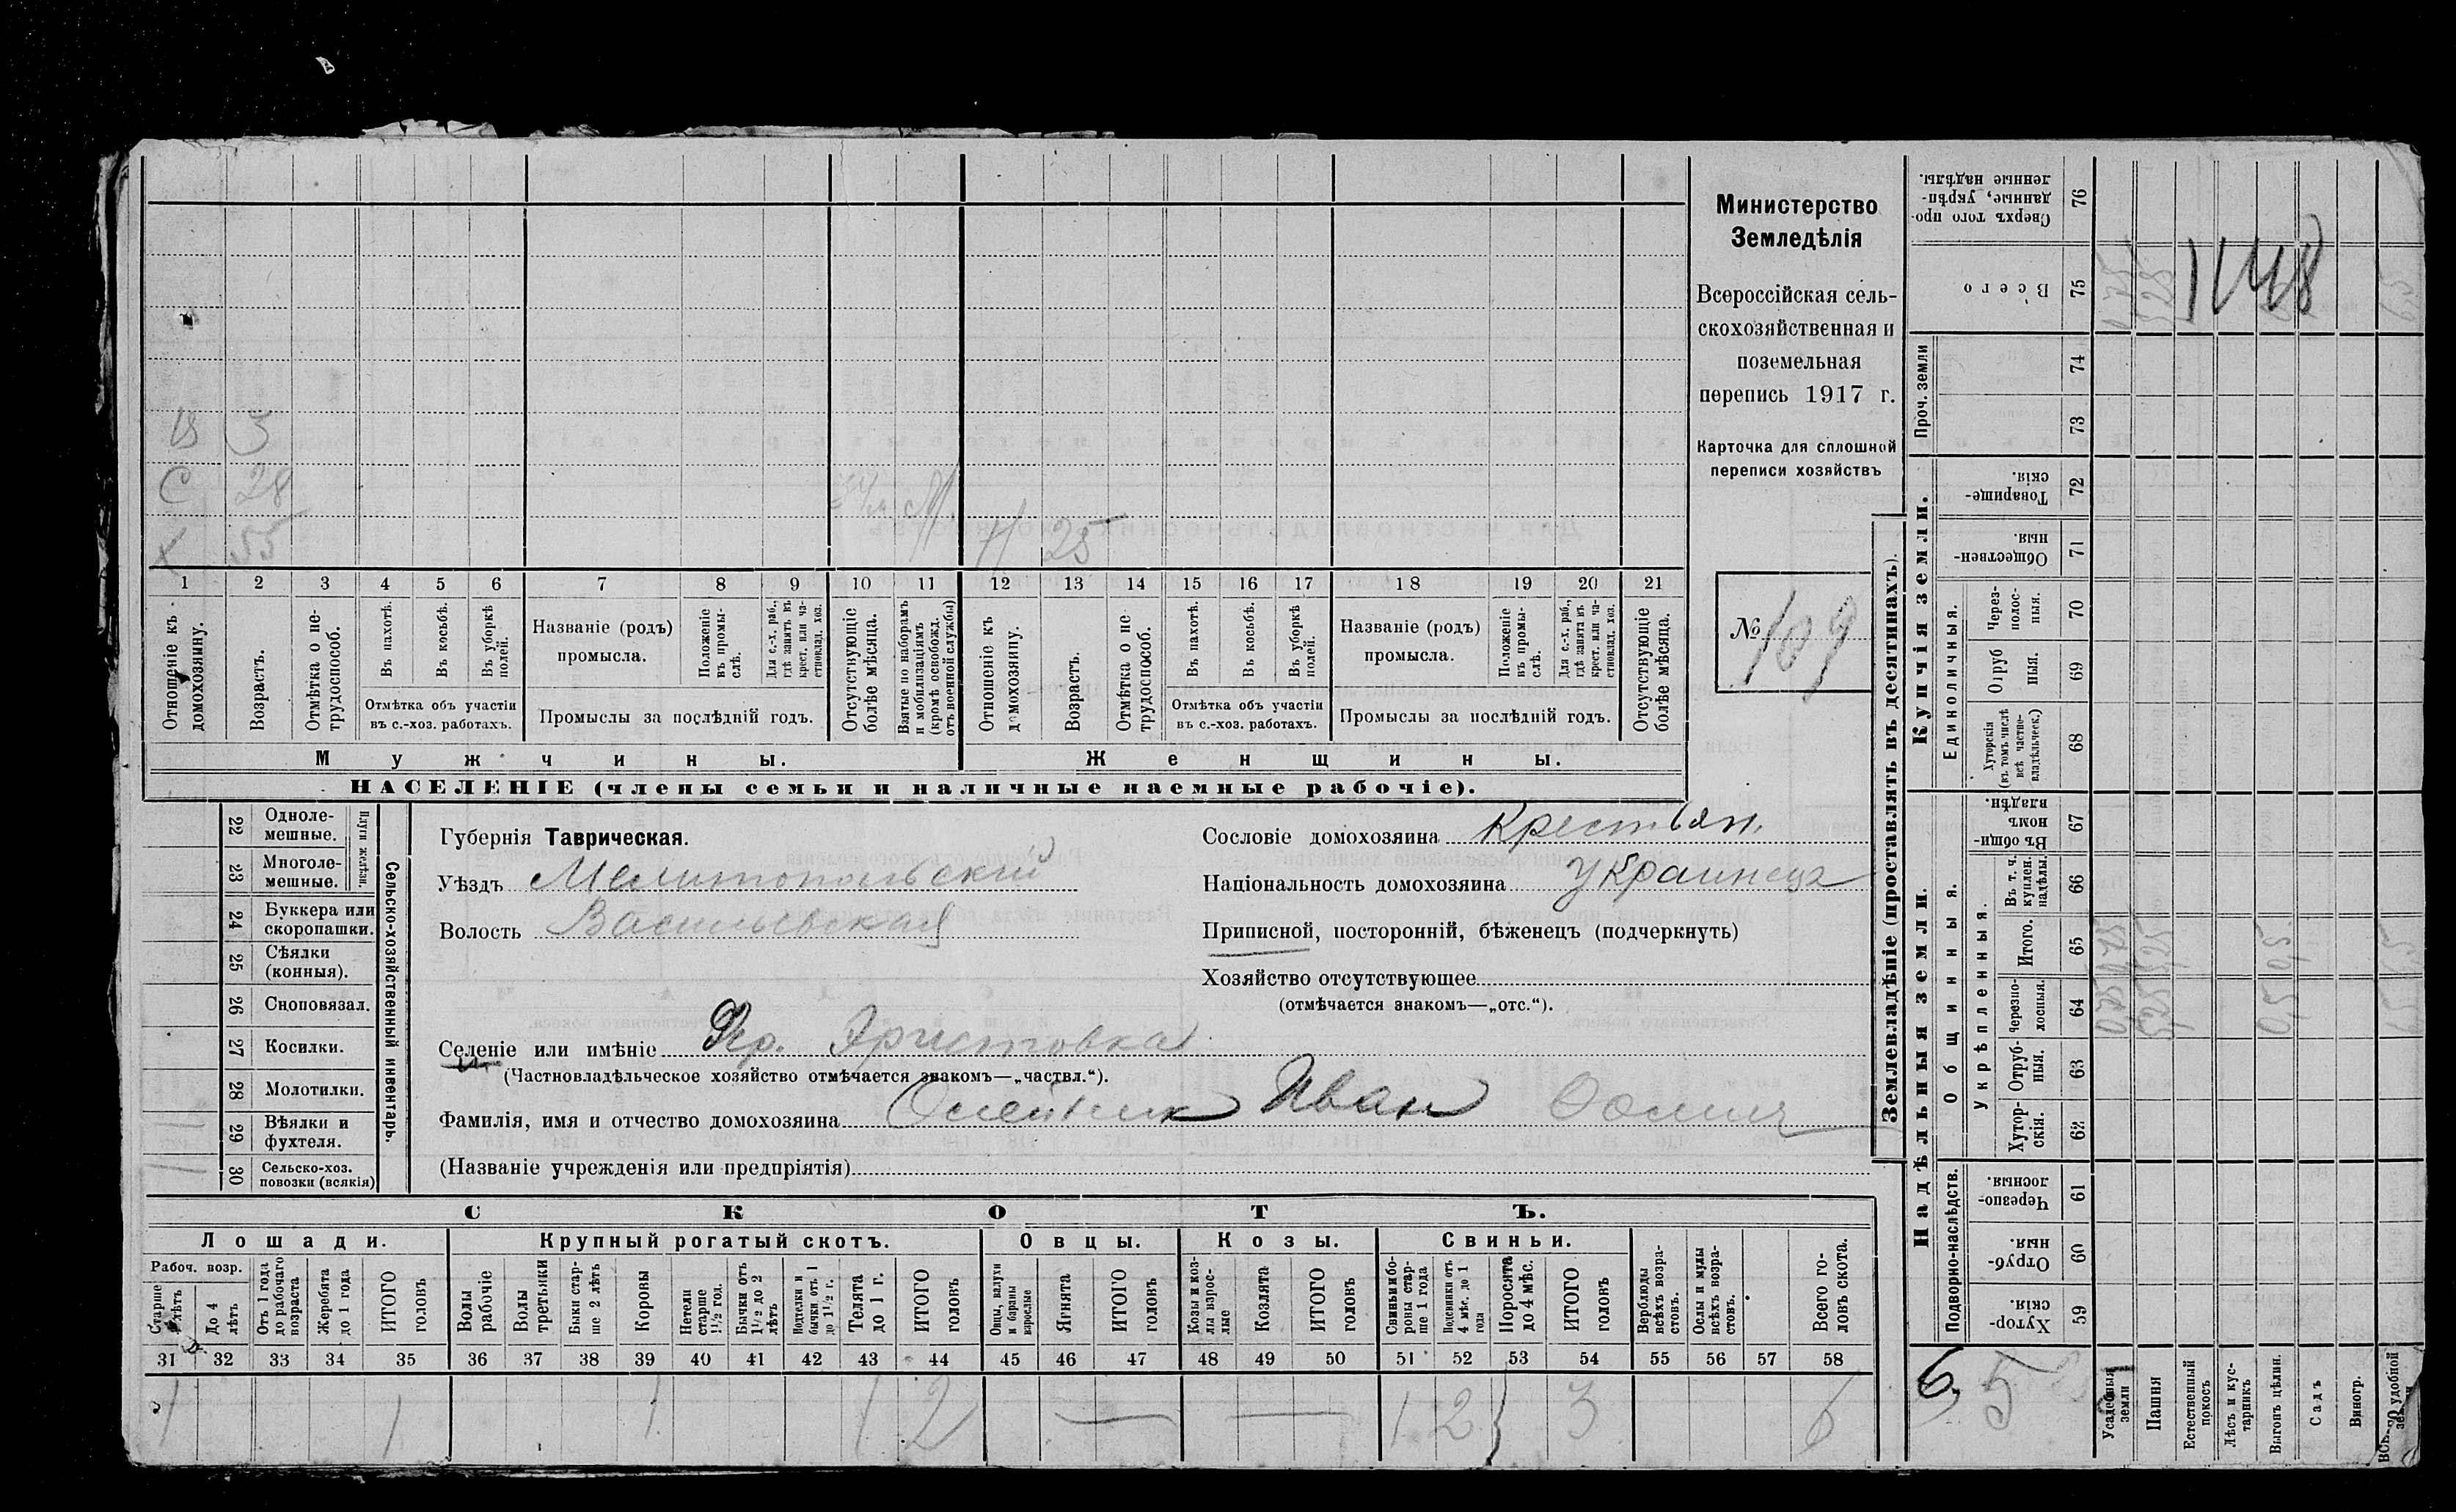 Министерство
Земледѣлія
Всероссійская сель-
скохозяйственная и
поземельная
перепись 1917 г.
Карточка для сплошной
переписи хозяйствъ
№ 109
В 3
С 28
Х 55
Н 25
1 2 3 4 5 6 7 8 9 10 11 12 13 14 15 16 17 18 19 20 21
Отношеніе къ домохозяину.
Возрастъ.
Отмѣтка о не-трудоспособ.
Въ пахотѣ.
Въ косьбѣ.
Въ уборкѣ полей.
Отмѣтка объ участіи
въ с.-хоз. работахъ.
Названіе (родъ)
промысла.
Положеніе въ промы-слѣ.
Для с.-х. раб., гдѣ занятъ въ крест. или ча-стновлад. хоз.
Промыслы за послѣдній годъ.
Отсутствующіе болѣе мѣсяца.
Взятые по наборамъ и мобилизаціямъ (кромѣ освобожд. отъ военной службы)
Отношеніе къ домохозяину.
Возрастъ.
Отмѣтка о не-трудоспособ.
Въ пахотѣ.
Въ косьбѣ.
Въ уборкѣ полей.
Отмѣтка объ участіи
въ с.-хоз. работахъ.
Названіе (родъ)
промысла.
Положеніе въ промы-слѣ.
Для с.-х. раб., гдѣ занята въ крест. или ча-стновлад. хоз.
Промыслы за послѣдній годъ.
Отсутствующіе болѣе мѣсяца.
Мужчины.
Женщины.
НАСЕЛЕНІЕ (члены семьи и наличные наемные рабочіе).
22 Одноле-мешные.
23 Многоле-мешные.
Плуги желѣзн.
24 Буккера или скоропашки.
25 Сѣялки (конныя).
26 Сноповязал.
27 Косилки.
28 Молотилки.
29 Вѣялки и фухтеля.
30 Сельско-хоз. повозки (всякія)
Сельско-хозяйственный инвентарь.
Губернія Таврическая.
Уѣздъ Мелитопольскій
Волость Васильевская
Сословіе домохозяина Крестьян.
Національность домохозяина Украинецъ
Приписной, посторонній, бѣженецъ (подчеркнуть)
Хозяйство отсутствующее
(отмѣчается знакомъ—„отс.“).
Селеніе или имѣніе
(Частновладѣльческое хозяйство отмѣчается знакомъ—„частвл.“).
Фамилія, имя и отчество домохозяина Олейник Иван
(Названіе учрежденія или предпріятія)
СКОТЪ.
Лошади.
Крупный рогатый скотъ.
Овцы.
Козы.
Свиньи.
Рабоч. возр.
До 4 лѣтъ
Отъ 1 года до рабочаго возраста
Жеребята до 1 года
ИТОГО головъ
Волы рабочіе
Волы третьяки
Быки стар-ше 2 лѣтъ
Коровы
Нетели старше 1½ год.
Бычки отъ 1½ до 2 лѣтъ
Подтелки и бычки отъ 1 до 1½ г.
Телята до 1 г.
ИТОГО головъ
Овцы, валухи и бараны взрослые
Ягнята
ИТОГО головъ
Козы и коз-лы взрос-лые
Козлята
ИТОГО головъ
Свиньи и бо-ровы стар-ше 1 года
Подсвинки отъ 4 мѣс. до 1 года
Поросята до 4 мѣс.
ИТОГО головъ
Верблюды всѣхъ возра-стовъ.
Ослы и мулы всѣхъ возра-стовъ.
Всего го-ловъ скота.
31 32 33 34 35 36 37 38 39 40 41 42 43 44 45 46 47 48 49 50 51 52 53 54 55 56 57 58
1 1 1 1 2 — — 1 2 3 6
Землевладѣніе (проставлять въ десятинахъ).
Сверхъ того про-данные, укрѣп-ленные надѣлы. 76
Всего 75
Проч. земли 74 73
Купчія земли.
Товарище-скія 72
Обществен-ныя. 71
Единоличныя.
Через-полос-ныя. 70
Отруб ныя. 69
Хуторскія (въ томъ числѣ всѣ частно-владѣльческ.) 68
Надѣльныя земли.
Общинныя.
Въ общи-номъ владѣн. 67
Укрѣпленныя.
Въ т. ч. куплен. надѣлы. 66
Итого. 65
Черезпо-лосныя. 64
Отруб-ныя. 63
Хутор-скія. 62
Подворно-наслѣдств.
Черезпо-лосныя. 61
Отруб-ныя. 60
Хутор-скія. 59
1148
6, 5
Усадебныя земли
Пашня
Естественный покосъ
Лѣсъ и кус-тарникъ
Выгонъ цѣлин.
Садъ
Виногр.